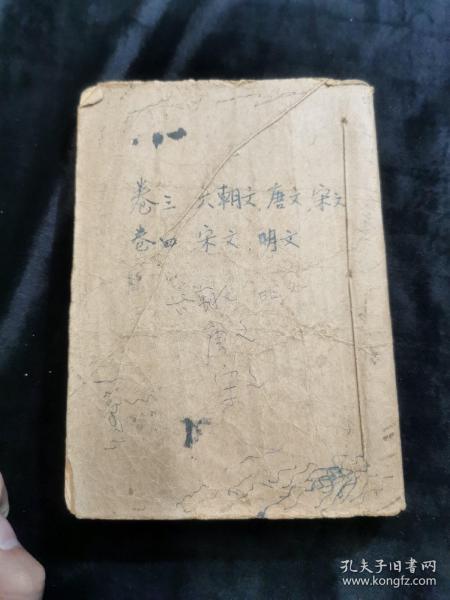 卷三 六朝文、唐文、宋文
卷四 宋文、明文
六朝文 明
唐文
宋文
孔夫子旧书网
www.kongfz.com